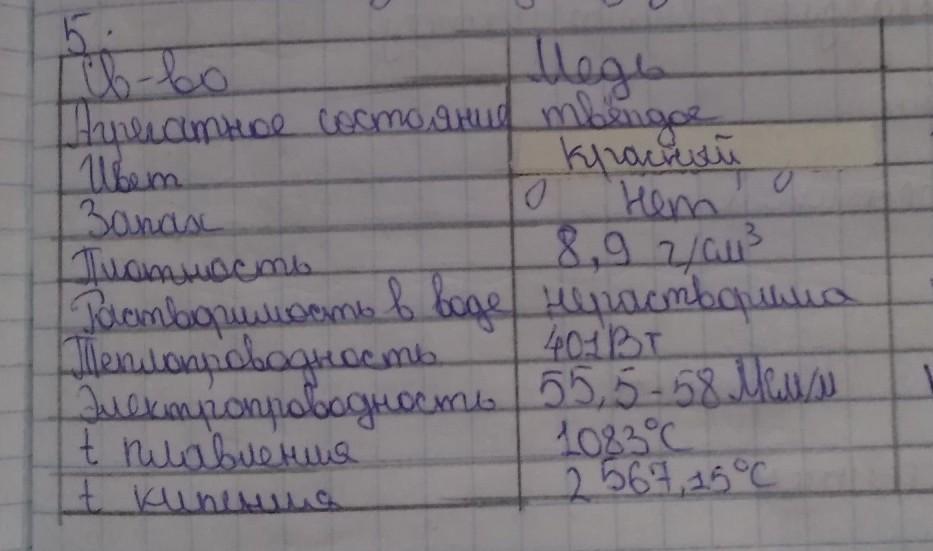 5.
Св-во Медь
Агрегатное состояние твёрдое
Цвет красный
Запах Нет
Плотность 8,9 г/см³
Растворимость в воде нерастворима
Теплопроводность 401Вт
Электропроводность 55,5-58 Мсм/м
t плавления 1083°C
t кипения 2567,15°C